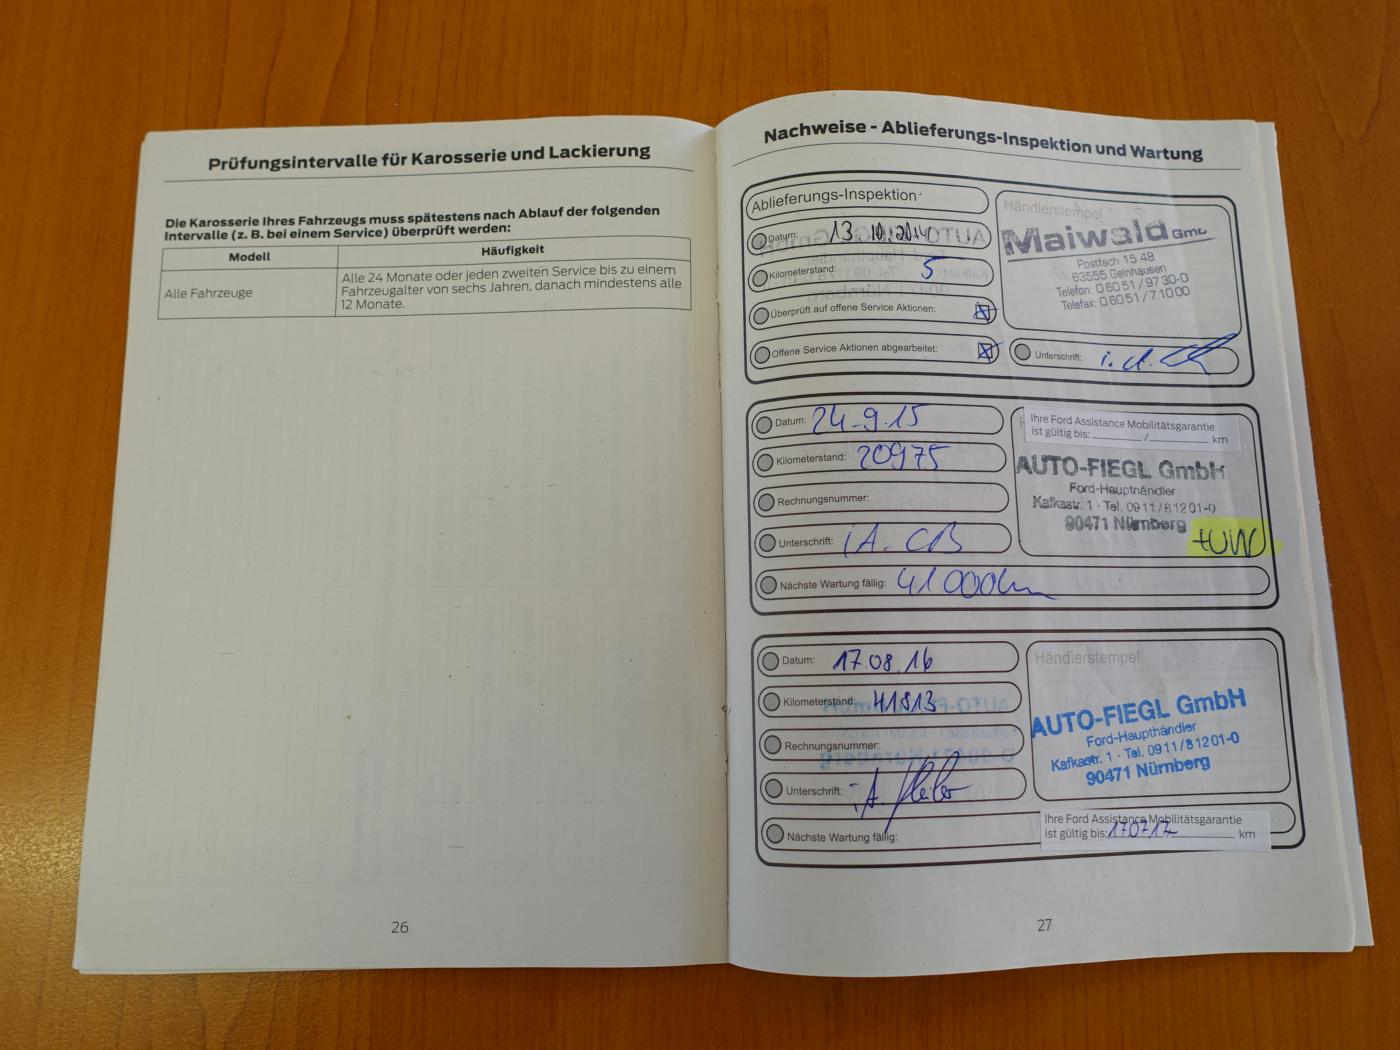 Prüfungsintervalle für Karosserie und Lackierung
Die Karosserie Ihres Fahrzeugs muss spätestens nach Ablauf der folgenden
Intervalle (z. B. bei einem Service) überprüft werden:
Modell
Häufigkeit
Alle Fahrzeuge
Alle 24 Monate oder jeden zweiten Service bis zu einem
Fahrzeugalter von sechs Jahren, danach mindestens alle
12 Monate.
26
Nachweise - Ablieferungs-Inspektion und Wartung
Ablieferungs-Inspektion
Datum: 13.10.2014
Kilometerstand: 5
Überprüft auf offene Service Aktionen:
Offene Service Aktionen abgearbeitet:
Händlerstempel
Maiwald GmbH
Postfach 15 48
63555 Gelnhausen
Telefon: 0 60 51 / 97 30-0
Telefax: 0 60 51 / 7 10 00
Unterschrift:
Datum: 24.9.15
Kilometerstand: 20975
Rechnungsnummer:
Unterschrift: iA. CB
Nächste Wartung fällig: 41000km
Ihre Ford Assistance Mobilitätsgarantie
ist gültig bis: ________ / __________ km
AUTO-FIEGL GmbH
Ford-Haupthändler
Kafkastr. 1 · Tel. 09 11 / 8 12 01-0
90471 Nürnberg
+UW
Datum: 17.08.16
Kilometerstand: 41813
Rechnungsnummer:
Unterschrift: i.A.
Nächste Wartung fällig:
Händlerstempel
AUTO-FIEGL GmbH
Ford-Haupthändler
Kafkastr. 1 · Tel. 09 11 / 8 12 01-0
90471 Nürnberg
Ihre Ford Assistance Mobilitätsgarantie
ist gültig bis: 17.07.17 __________ km
27